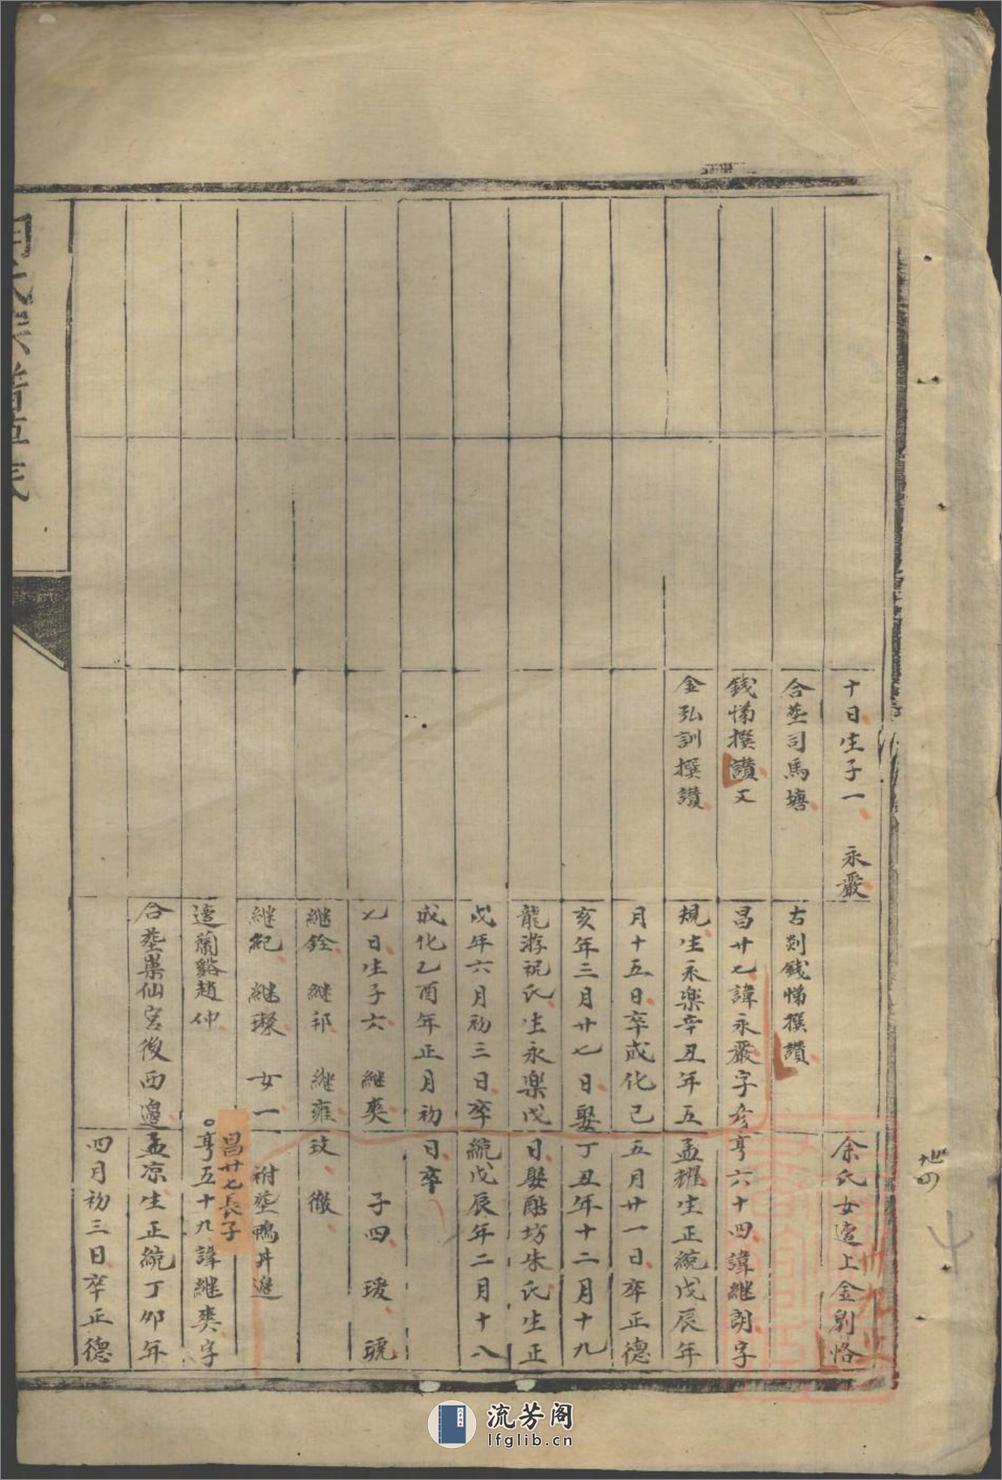 十日生子一 永嚴
合塟司馬塘
錢悌撰讚又
金弘訓撰讚
古剡錢悌撰讚
昌廿七諱永嚴字彦
規生永樂辛丑年五
月十五日卒成化己
亥年三月廿七日娶
龍游祝氏生永樂戊
戌年六月初三日卒
成化乙酉年正月初
乙日生子六 継奭
継銓 継祁 継雍
継紀 継璨 女一
適蘭谿趙仲
合塟巢仙宮後西邉
余氏女適上金刘恪
亨六十四諱継朗字
孟耀生正統戊辰年
五月廿一日卒正德
丁丑年十二月十九
日娶酤坊朱氏生正
統戊辰年二月十八
日卒
子四 瑗 琥
玟 徽
祔塟鴨井邉
昌廿七長子
亨五十九諱継奭字
孟凉生正統丁卯年
四月初三日卒正德
流芳阁
lfglib.cn